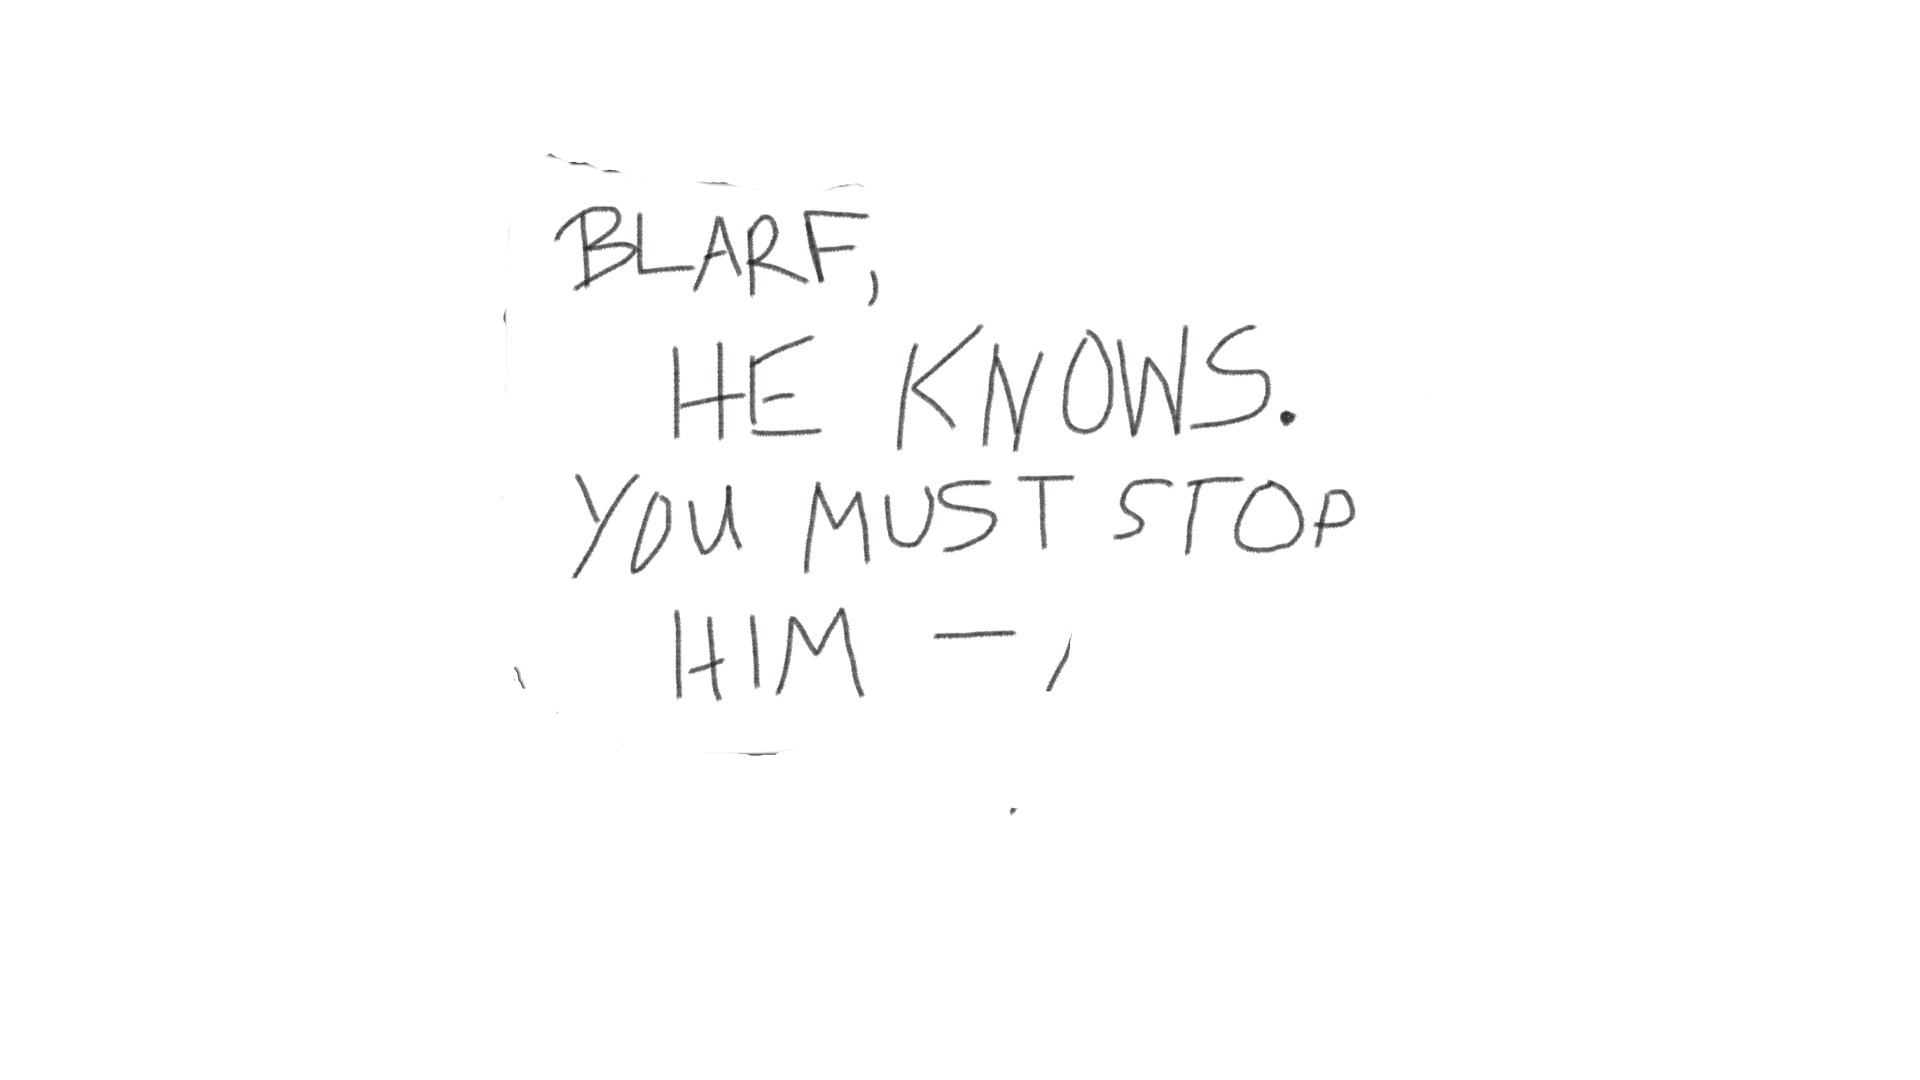 BLARF,
HE KNOWS.
YOU MUST STOP
HIM —